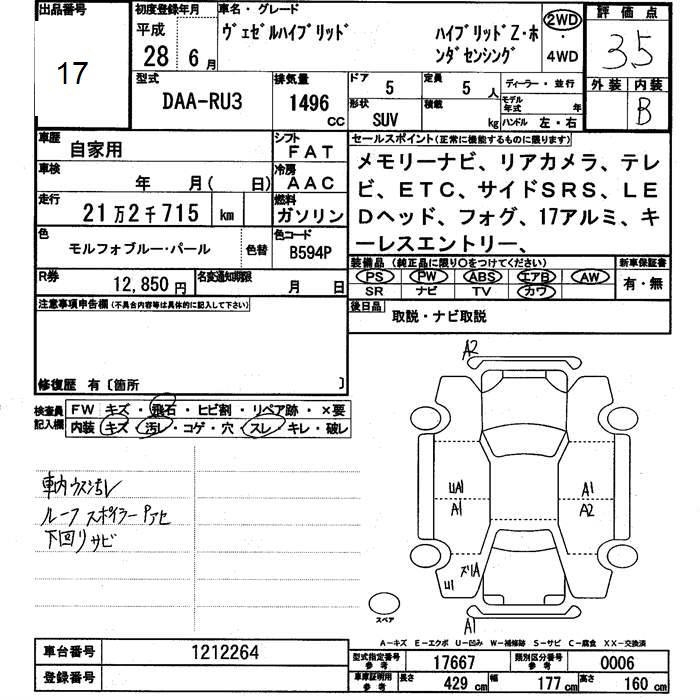 出品番号
17
初度登録年月
平成
28 6月
車名・グレード
ヴェゼルハイブリッド
ハイブリッドZ・ホンダセンシング
2WD
・
4WD
評価点
3.5
外装 内装
B
型式
DAA-RU3
排気量
1496
CC
ドア
5
定員
5 人
形状
SUV
積載
kg
ディーラー・並行
モデル年式 年
ハンドル 左・右
車歴
自家用
シフト
FAT
車検
年 月( 日)
冷房
AAC
走行
21万2千715 km
燃料
ガソリン
色
モルフォブルー・パール
色替
色コード
B594P
R券
12,850円
名変通知期限
月 日
セールスポイント(正常に機能するものに限ります)
メモリーナビ、リアカメラ、テレ
ビ、ETC、サイドSRS、LE
Dヘッド、フォグ、17アルミ、キ
ーレスエントリー、
装備品(純正品に限り○をつけてください)
PS PW ABS エアB AW
SR ナビ TV カワ
新車保証書
有・無
後日品
取説・ナビ取説
注意事項申告欄(不具合内容等は具体的に記入して下さい)
修復歴 有〔箇所 〕
検査員記入欄
FW キズ・飛石・ヒビ割・リペア跡・×要
内装 キズ・汚レ・コゲ・穴・スレ・キレ・破レ
車内ウス汚レ
ルーフスポイラーPアセ
下回りサビ
A2
UA1
A1
A1
A2
ズリA
U1
A1
スペア
A-キズ E-エクボ U-凹み W-補修跡 S-サビ C-腐食 XX-交換済
車台番号
1212264
登録番号
型式指定番号
参考
17667
類別区分番号
参考
0006
車庫証明用
参考
長さ 429 cm 幅 177 cm 高さ 160 cm